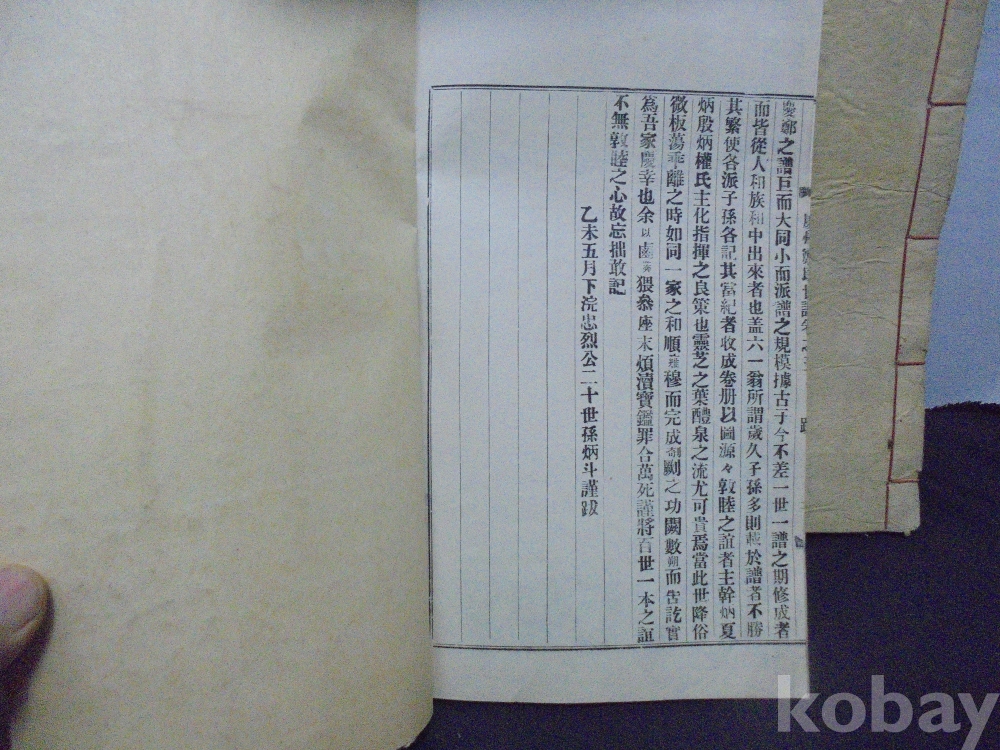 慶鄭之譜巨而大同小而派譜之規模據古于今不差一世一譜之期修成者
而皆從人和族和中出來者也盖六一翁所謂歲久子孫多則載於譜者不勝
其繁使各派子孫各記其當紀者收成卷册以圖源々敦睦之誼者主幹炳夏
炳殷炳權氏主化指揮之良策也靈芝之葉醴泉之流尤可貴焉當此世降俗
微板蕩乖離之時如同一家之和順雍穆而完成剞劂之功闕數朔而告訖實
為吾家慶幸也余以鹵莽猥叅座末煩瀆寶鑑罪合萬死謹將百世一本之誼
不無敦睦之心故忘拙敢記
乙未五月下浣忠烈公二十世孫炳斗謹跋
跋
kobay